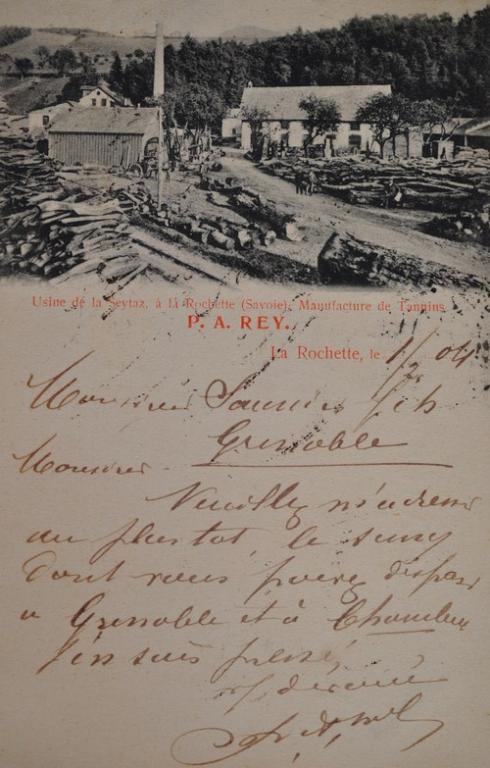 Usine de la Seytaz, à la Rochette (Savoie). Manufacture de Tannins
P. A. REY.
La Rochette, le 1/2 04
Monsieur Saunier fils
Grenoble
Monsieur
Veuillez m'adresser
au plus tot, le sumac
dont vous pouvez disposer
a Grenoble et à Chambery
j'en suis pressé,